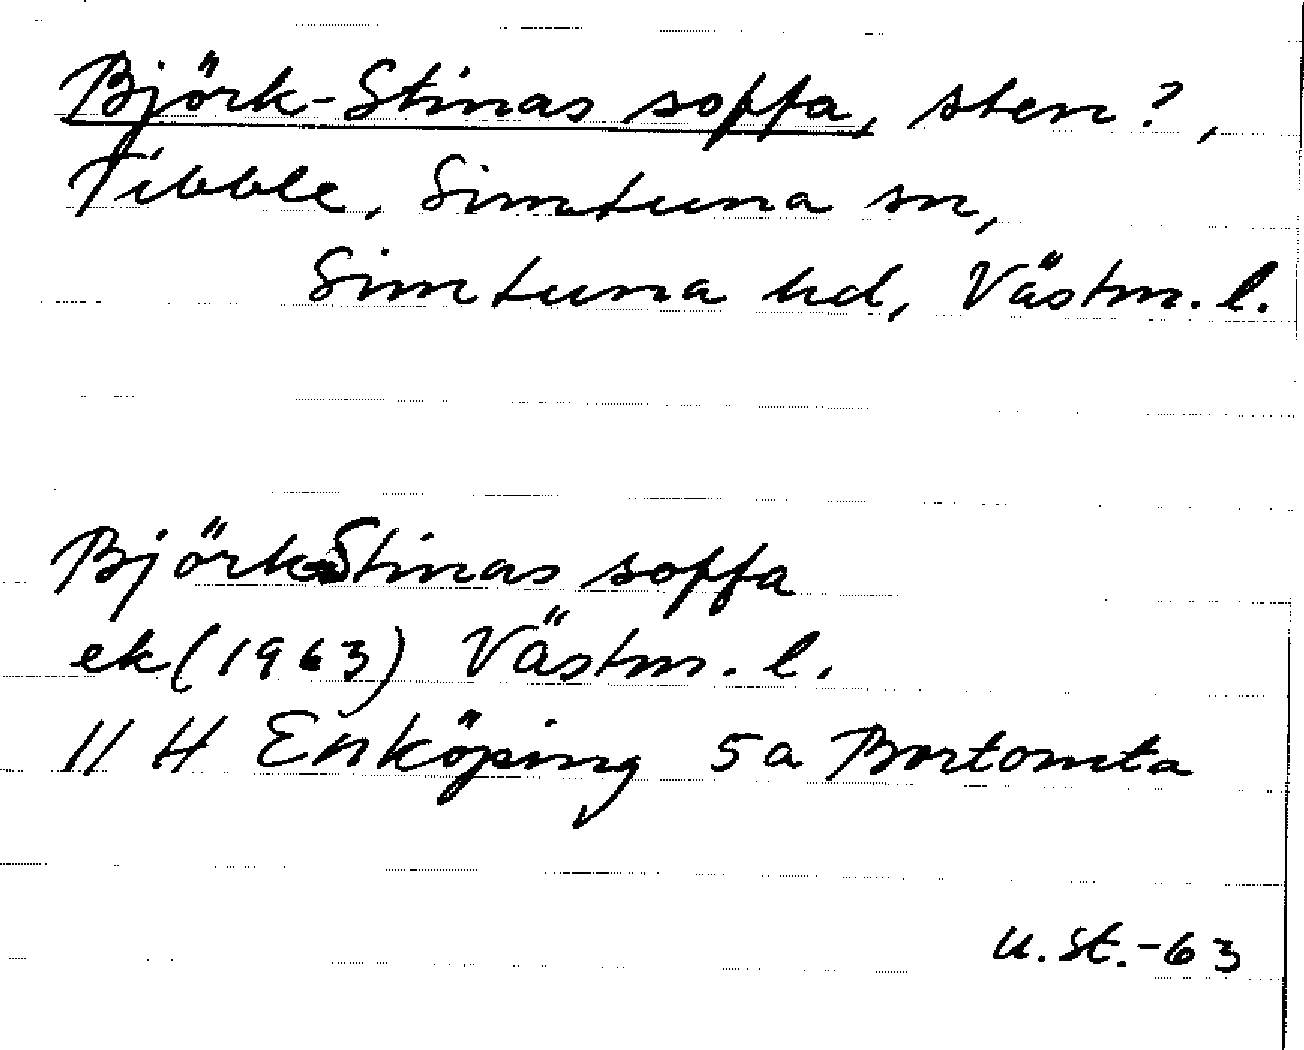 Björk-Stinas soffa, sten?,
Fibble, Simtuna sn,
Simtuna hd, Västm. l.
BjörkStinas soffa
ek (1963) Västm. l.
11 H Enköping 5a Bortomta
U. St. -63